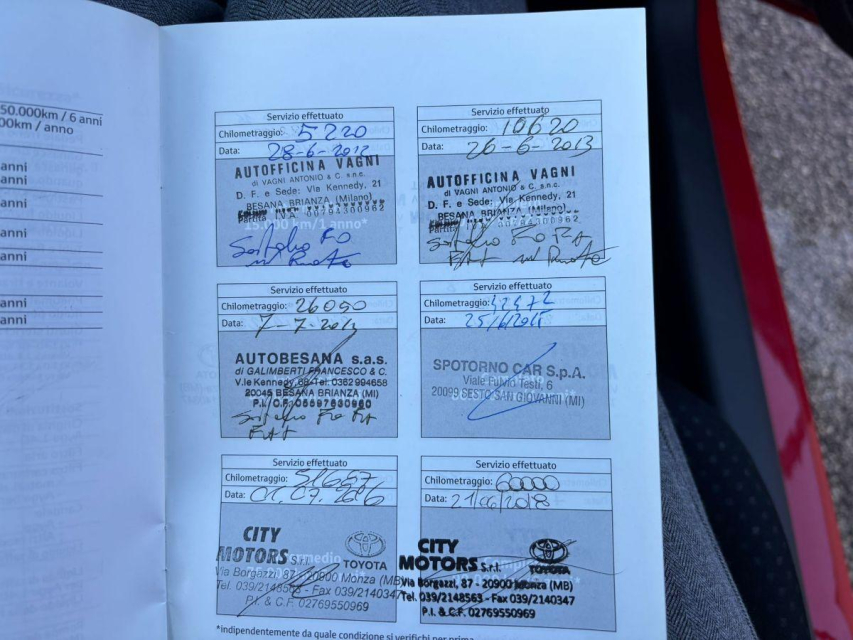 50.000km / 6 anni
00km / anno
anni
anni
anni
anni
anni
anni
anni
Servizio effettuato
Chilometraggio: 5220
Data: 28-6-2012
AUTOFFICINA VAGNI
di VAGNI ANTONIO & C. s.n.c.
D. F. e Sede: Via Kennedy, 21
BESANA BRIANZA (Milano)
Partita IVA 00791300962
15.000 km/1 anno*
Servizio effettuato
Chilometraggio: 10620
Data: 26-6-2013
AUTOFFICINA VAGNI
di VAGNI ANTONIO & C. s.n.c.
D. F. e Sede: Via Kennedy, 21
BESANA BRIANZA (Milano)
Partita 00791300962
Servizio effettuato
Chilometraggio: 26090
Data: 7-7-201
AUTOBESANA s.a.s.
di GALIMBERTI FRANCESCO & C.
V.le Kennedy, 68 Tel. 0362 994658
20045 BESANA BRIANZA (MI)
P.I. C.F. 05597630960
Servizio effettuato
Chilometraggio:
Data: 25/6/2015
SPOTORNO CAR S.p.A.
Viale Fulvio Testi, 6
20099 SESTO SAN GIOVANNI (MI)
Servizio effettuato
Chilometraggio: 51667
Data: 07.2016
CITY
MOTORS s.r.l.
TOYOTA
Via Borgazzi, 87 - 20900 Monza (MB)
Tel. 039/2148563 - Fax 039/2140347
P.I. & C.F. 02769550969
Servizio effettuato
Chilometraggio: 60000
Data: 21/06/2018
CITY
MOTORS s.r.l.
TOYOTA
Via Borgazzi, 87 - 20900 Monza (MB)
Tel. 039/2148563 - Fax 039/2140347
P.I. & C.F. 02769550969
*indipendentemente da quale condizione si verifichi per prima